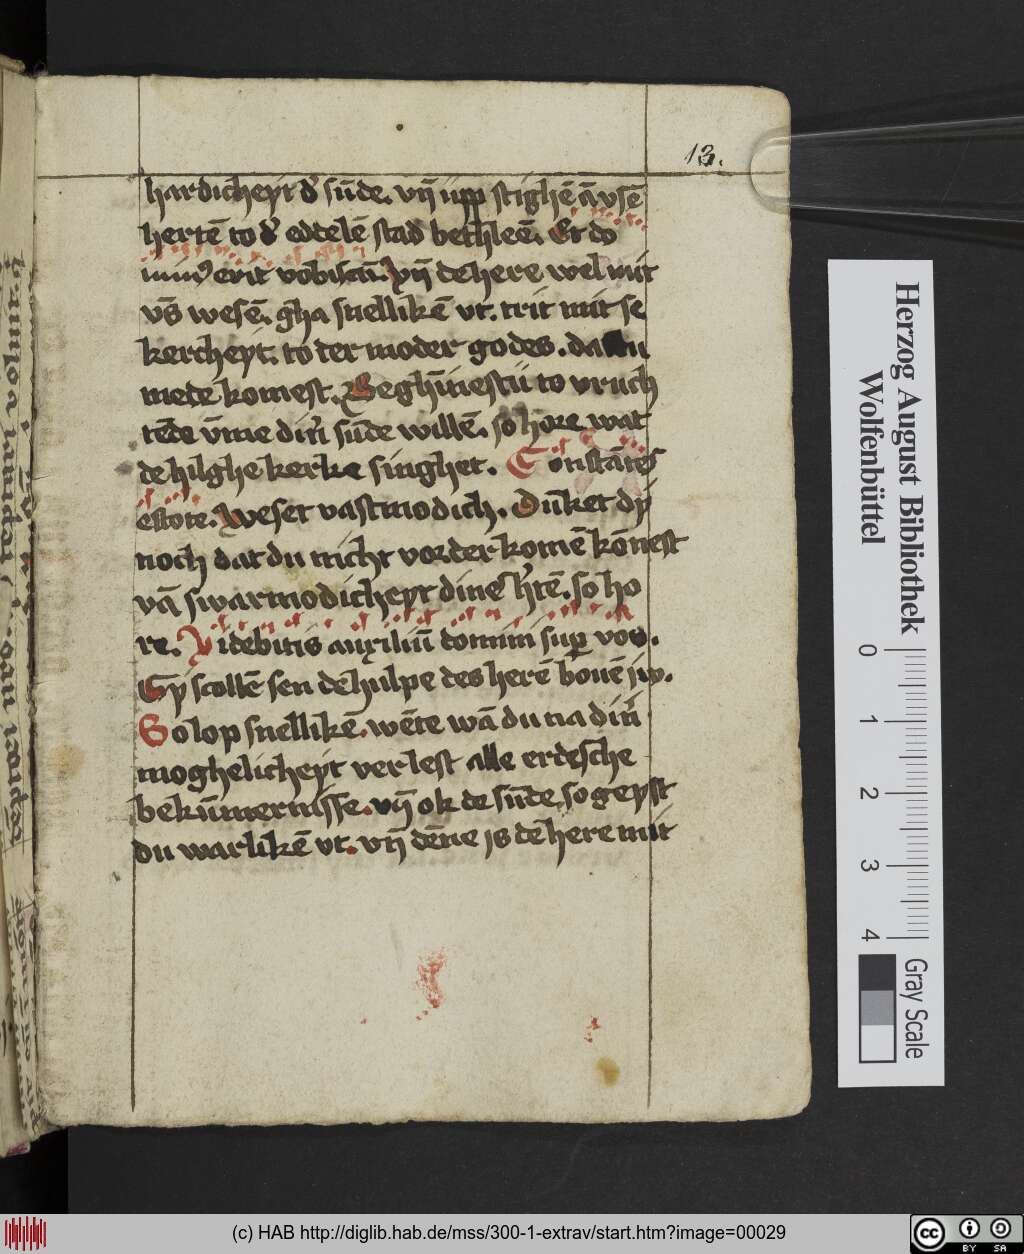 13.
hardicheyt d' sūde. vn̄ upp stighē āvsē
hertē to d' eddelē stad bethleē. Et do
min9 erit vobiscū. Vn̄ de here wel mit
vs̄ wesē. gha snellikē vt. trit mit se
kercheyt. to der moder godes. da
mede komest. Beghīnestu to vruch
tēde v̄me din̄ sūde willē. so hore wat
de hilghe kerke singhet. Constātes
estote. Weset vastmodich. Dūket dy
noch dat du nicht vorder komē kōnest
vā swarmodicheyt dine h'tē. so ho
re. Videbitis auxiliū domini sup vos.
Gy scollē sen de hulpe des herē bouē iw.
So lop snellikē. wēte wā du na din̄
moghelicheyt verlest alle erdesche
bekūmernisse. vn̄ ok de sūde, so geyst
du warlikē vt. vn̄ dēne is de here mit
Herzog August Bibliothek
Wolfenbüttel
0 1 2 3 4
Gray Scale
(c) HAB http://diglib.hab.de/mss/300-1-extrav/start.htm?image=00029
cc BY SA